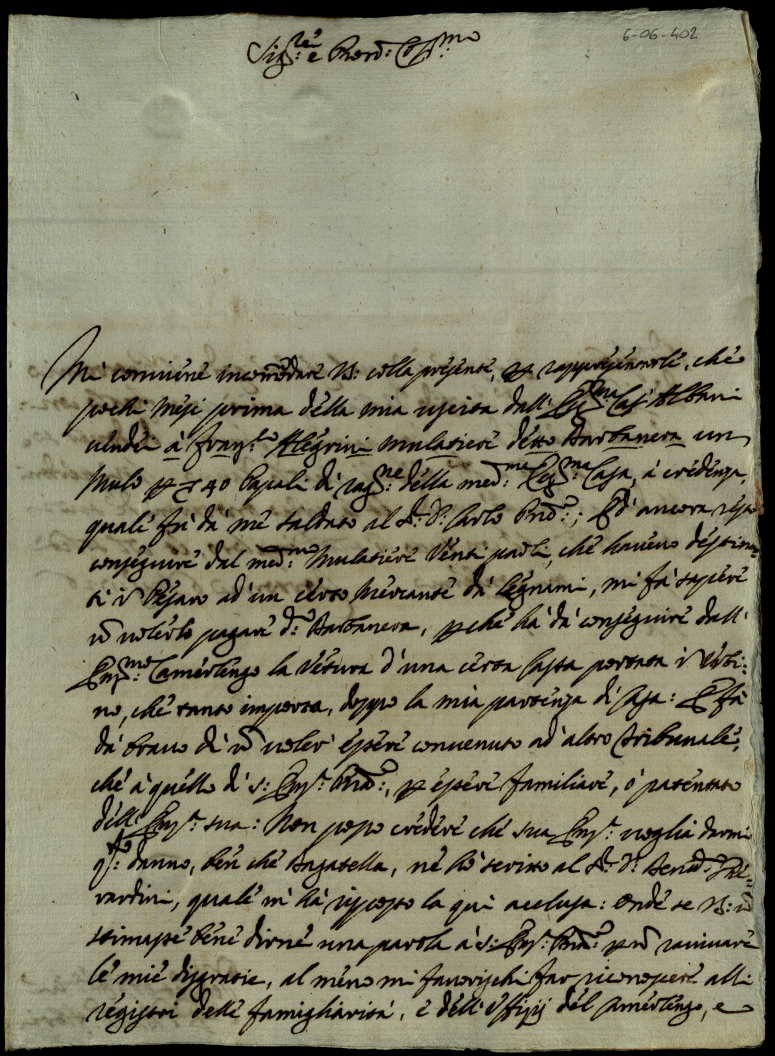 6-06-402
Sig.re e Pron: Oss.mo
Mi conviene incomodare VS: colla presente, per rappresentarle, che
pochi mesi prima della mia uscita dall' Ecc.ma Casa Albani
vendei à Fran.co Alegrini mulatiere detto Barbanera un
Mulo per 40 Papali di rag.ne della med.ma Ecc.ma Casa, à credenza,
quale fù dà mè saldato al S.r D. Carlo; Ed ancora resto
conseguire dal med.mo Mulatiere Venti paoli, che havevo destina-
ti in Pesaro ad un certo Mercante dà legnami, mi fà sapere
non volerlo pagare d.o Barbanera, perche hà dà conseguire dall'
Em.mo Camerlengo la Vetura d'una certa Cassa portata in Urbi-
no, che tanto importa, doppo la mia partenza di Casa: E fà
dà bravo di non voler' essere convenuto ad' altro Tribunale,
che à quello di S: Em.a, per essere familiare, ò patentato
dell' Em.a sua: Non posso credere che sua Em.a voglia darmi
q.to danno, ben che bagatella, nè hò scritto al S.r D. Bened.o
vardini, quale m' hà risposto la qui acclusa: Onde se VS: non
stimasse bene dirne una parola à S: Em.a per non ravivare
le mie disgrazie, al meno mi favorischi far riconoscere alli
registri delle famigliarità, e dell' Offizij del Camerlengo, e